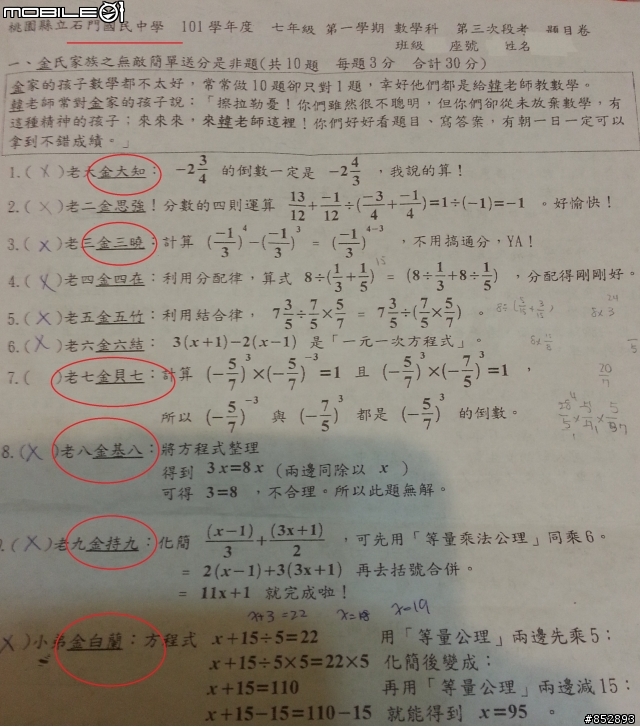 mobile01
桃園縣立石門國民中學 101學年度 七年級 第一學期 數學科 第三次段考 題目卷
班級 座號 姓名
一、金氏家族之無敵簡單送分是非題(共10題 每題3分 合計30分)
金家的孩子數學都不太好,常常做10題卻只對1題,幸好他們都是給韓老師教數學。
韓老師常對金家的孩子說:「擦拉勒憂!你們雖然很不聰明,但你們卻從未放棄數學,有
這種精神的孩子;來來來,來韓老師這裡!你們好好看題目、寫答案,有朝一日一定可以
拿到不錯成績。」
1.(X)老大金大知: -2 3/4 的倒數一定是 -2 4/3 ,我說的算!
2.(X)老二金思強!分數的四則運算 13/12+(-1)/12÷((-3)/4+(-1)/4)=1÷(-1)=-1 。好愉快!
3.(X)老三金三曉:計算 ((-1)/3)^4-((-1)/3)^3 = ((-1)/3)^(4-3) ,不用搞通分,YA!
4.(X)老四金四在:利用分配律,算式 8÷(1/3+1/5) = (8÷1/3+8÷1/5) ,分配得剛剛好。
5.(X)老五金五竹:利用結合律, 7 3/5÷7/5×5/7 = 7 3/5÷(7/5×5/7) 。
6.(X)老六金六結: 3(x+1)-2(x-1) 是「一元一次方程式」。
7.( )老七金貝七:計算 (-5/7)^3×(-5/7)^-3=1 且 (-5/7)^3×(-7/5)^3=1 ,
所以 (-5/7)^-3 與 (-7/5)^3 都是 (-5/7)^3 的倒數。
8.(X)老八金基八:將方程式整理
得到 3x=8x (兩邊同除以 x )
可得 3=8 ,不合理。所以此題無解。
9.(X)老九金持九:化簡 (x-1)/3+(3x+1)/2 ,可先用「等量乘法公理」同乘6。
= 2(x-1)+3(3x+1) 再去括號合併。
= 11x+1 就完成啦!
x+3=22 x=19
X)小弟金白蘭:方程式 x+15÷5=22 用「等量公理」兩邊先乘5:
x+15÷5×5=22×5 化簡後變成:
x+15=110 再用「等量公理」兩邊減15:
x+15-15=110-15 就能得到 x=95 。
#852893